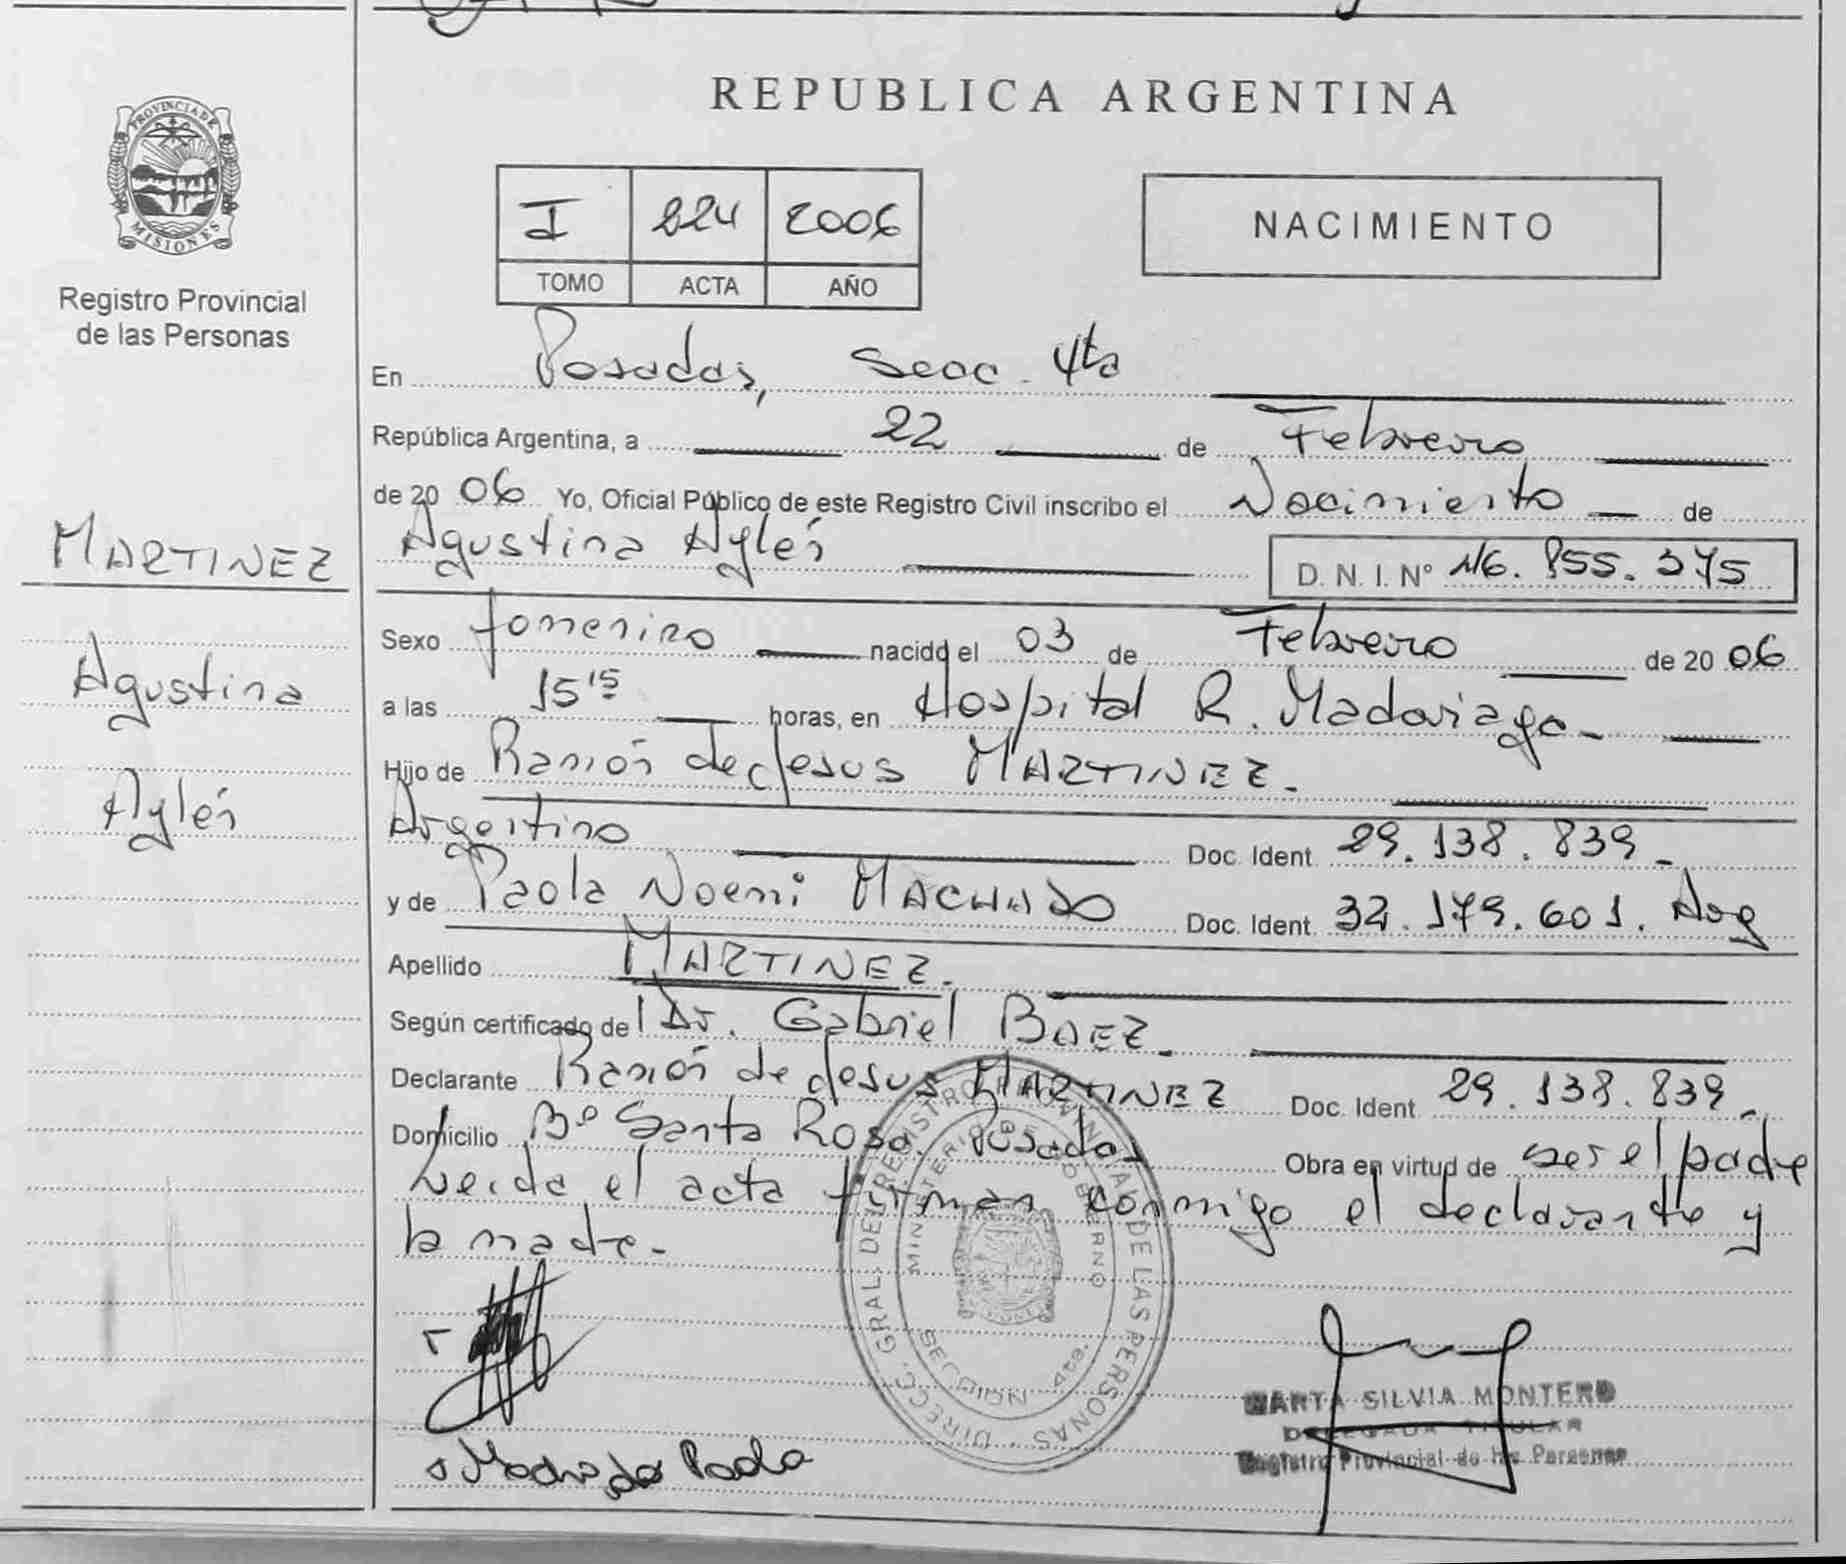 PROVINCIA DE
MISIONES
Registro Provincial
de las Personas
MARTINEZ
Agustina
Aylén
REPUBLICA ARGENTINA
I 224 2006
TOMO ACTA AÑO
NACIMIENTO
En Posadas, Secc. 4ta
República Argentina, a 22 de Febrero
de 2006 Yo, Oficial Público de este Registro Civil inscribo el Nacimiento de
Agustina Aylén D. N. I. Nº 46.855.375
Sexo femenino nacido el 03 de Febrero de 2006
a las 15 15 horas, en Hospital R. Madariaga
Hijo de Ramón de Jesus MARTINEZ.
Argentino Doc. Ident 29.138.839.
y de Paola Noemi MACHADO Doc. Ident. 32.179.601. Arg
Apellido MARTINEZ.
Según certificado de Dr. Gabriel BAEZ
Declarante Ramón de Jesus MARTINEZ Doc. Ident 29.138.839.
Domicilio Bº Santa Rosa. Posadas Obra en virtud de ser el padre
Leida el acta firman conmigo el declarante y
la madre.
DIRECC. GRAL. DEL REGISTRO PROVINCIAL DE LAS PERSONAS
MINISTERIO DE GOBIERNO
SECCION 4ta.
Machado Paola
MARTA SILVIA MONTERO
DELEGADA TITULAR
Registro Provincial de las Personas